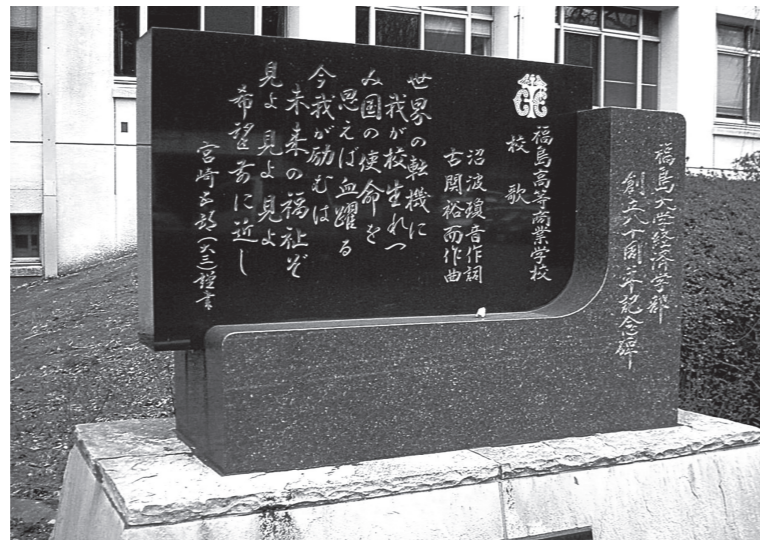 福島大学経済学部
創立八十周年記念碑
福島高等商業学校
校歌
沼波瓊音作詞
古関裕而作曲
世界の転機に
我が校生れつ
み国の使命を
思えば血躍る
今我が励むは
未来の福祉ぞ
見よ見よ見よ
希望前に近し
宮崎 謹書